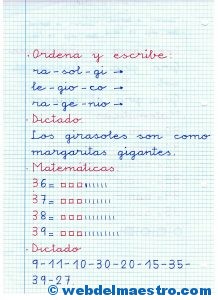 . Ordena y escribe:
ra - sol - gi →
le - gio - co →
ra - ge - nio →
. Dictado
Los girasoles son como
margaritas gigantes.
. Matemáticas.
36=
37=
38=
39=
. Dictado
9-11-10-30-20-15-35-
39-27
© webdelmaestro.com